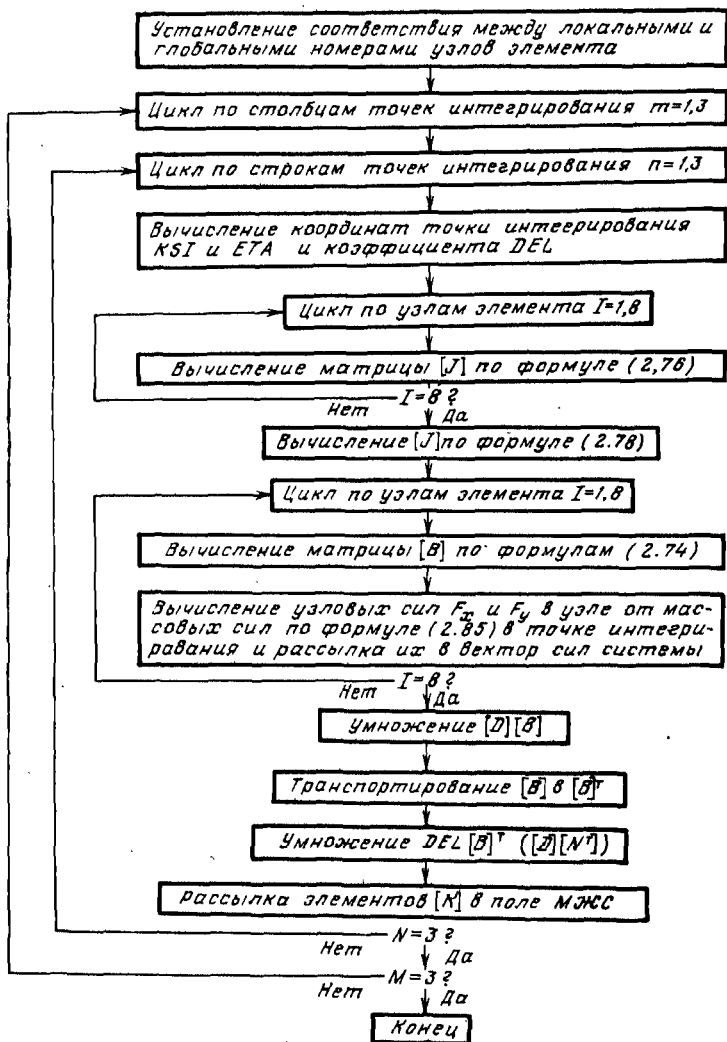 Установление соответствия между локальными и
глобальными номерами узлов элемента
Цикл по столбцам точек интегрирования m=1,3
Цикл по строкам точек интегрирования n=1,3
Вычисление координат точки интеегрирования
KSI и ETA и коэффициента DEL
Цикл по узлам элемента I=1,8
Вычисление матрицы [J] по формуле (2,76)
I=8?
Нет
Да
Вычисление [J] по формуле (2.78)
Цикл по узлам элемента I=1,8
Вычисление матрицы [B] по формулам (2.74)
Вычисление узловых сил Fx и Fy в узле от мас-
совых сил по формуле (2.85) в точке интегри-
рования и рассылка их в вектор сил системы
I=8?
Нет
Да
Умножение [D][B]
Транспортирование [B] в [B]ᵀ
Умножение DEL [B]ᵀ ([D][Nᵀ])
Рассылка элементов [K] в поле МЖС
N=3?
Нет
Да
M=3?
Нет
Да
Конец